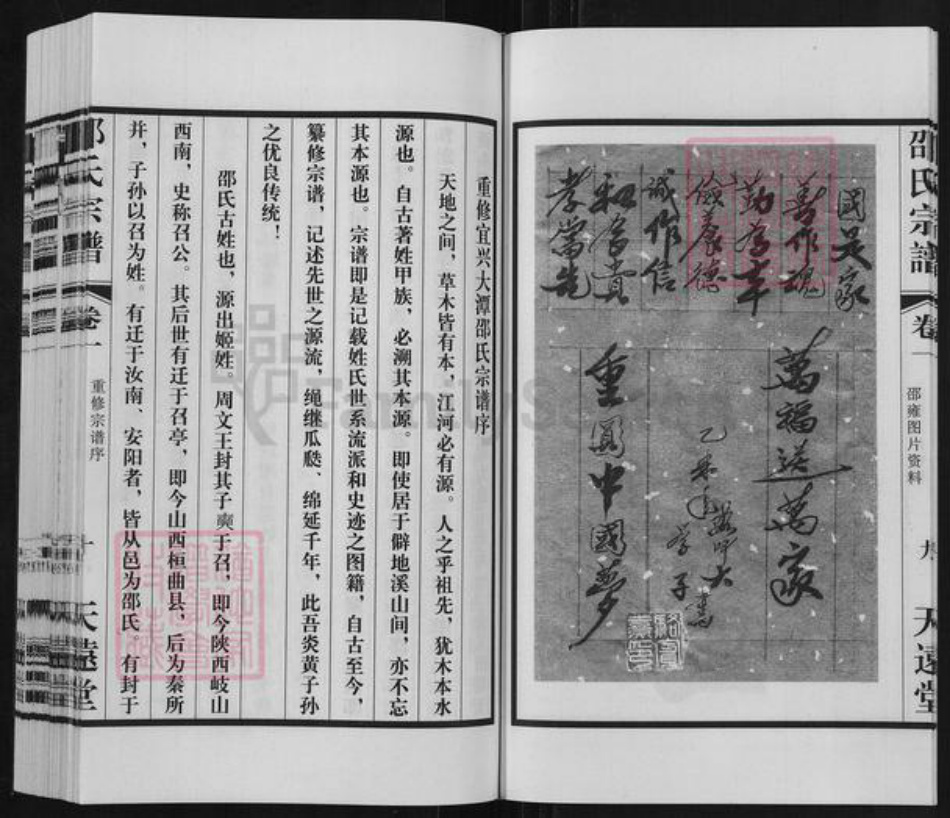 邵氏宗譜
卷一
邵雍图片资料
九
天远堂
國是家
善作魂
勤为本
俭養德
诚作信
和为贵
孝當先
萬福送萬家
乙未年
重圓中國夢
重修宜兴大潭邵氏宗谱序
天地之间，草木皆有本，江河必有源。人之乎祖先，犹木本水
源也。自古著姓甲族，必溯其本源。即使居于僻地溪山间，亦不忘
其本源也。宗谱即是记载姓氏世系流派和史迹之图籍，自古至今，
纂修宗谱，记述先世之源流，绳继瓜瓞、绵延千年，此吾炎黄子孙
之优良传统！
邵氏古姓也，源出姬姓。周文王封其子奭于召，即今陕西岐山
西南，史称召公。其后世有迁于召亭，即今山西桓曲县，后为秦所
并，子孙以召为姓。有迁于汝南、安阳者，皆从邑为邵氏。有封于
邵氏宗譜
卷一
重修宗谱序
十
天远堂